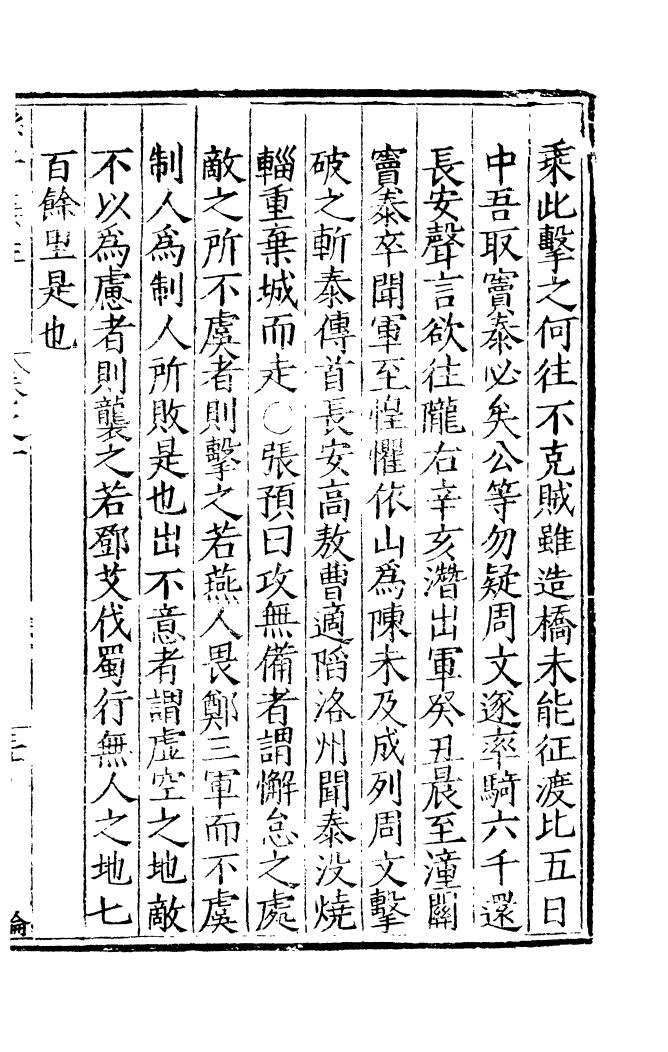 乘此擊之何往不克賊雖造橋未能征渡比五日
中吾取竇泰必矣公等勿疑周文遂率騎六千還
長安聲言欲往隴右辛亥潛出軍癸丑晨至潼關
竇泰卒聞軍至惶懼依山爲陳未及成列周文擊
破之斬泰傳首長安高敖曹適陷洛州聞泰没燒
輜重棄城而走〇張預曰攻無備者謂懈怠之處
敵之所不虞者則擊之若燕人畏鄭三軍而不虞
制人爲制人所敗是也出不意者謂虛空之地敵
不以爲慮者則襲之若鄧艾伐蜀行無人之地七
百餘里是也